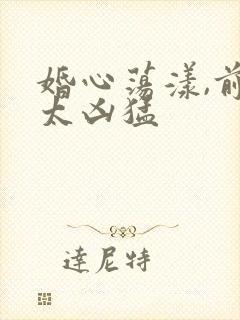 婚心蕩漾,前
太凶猛
達尼特